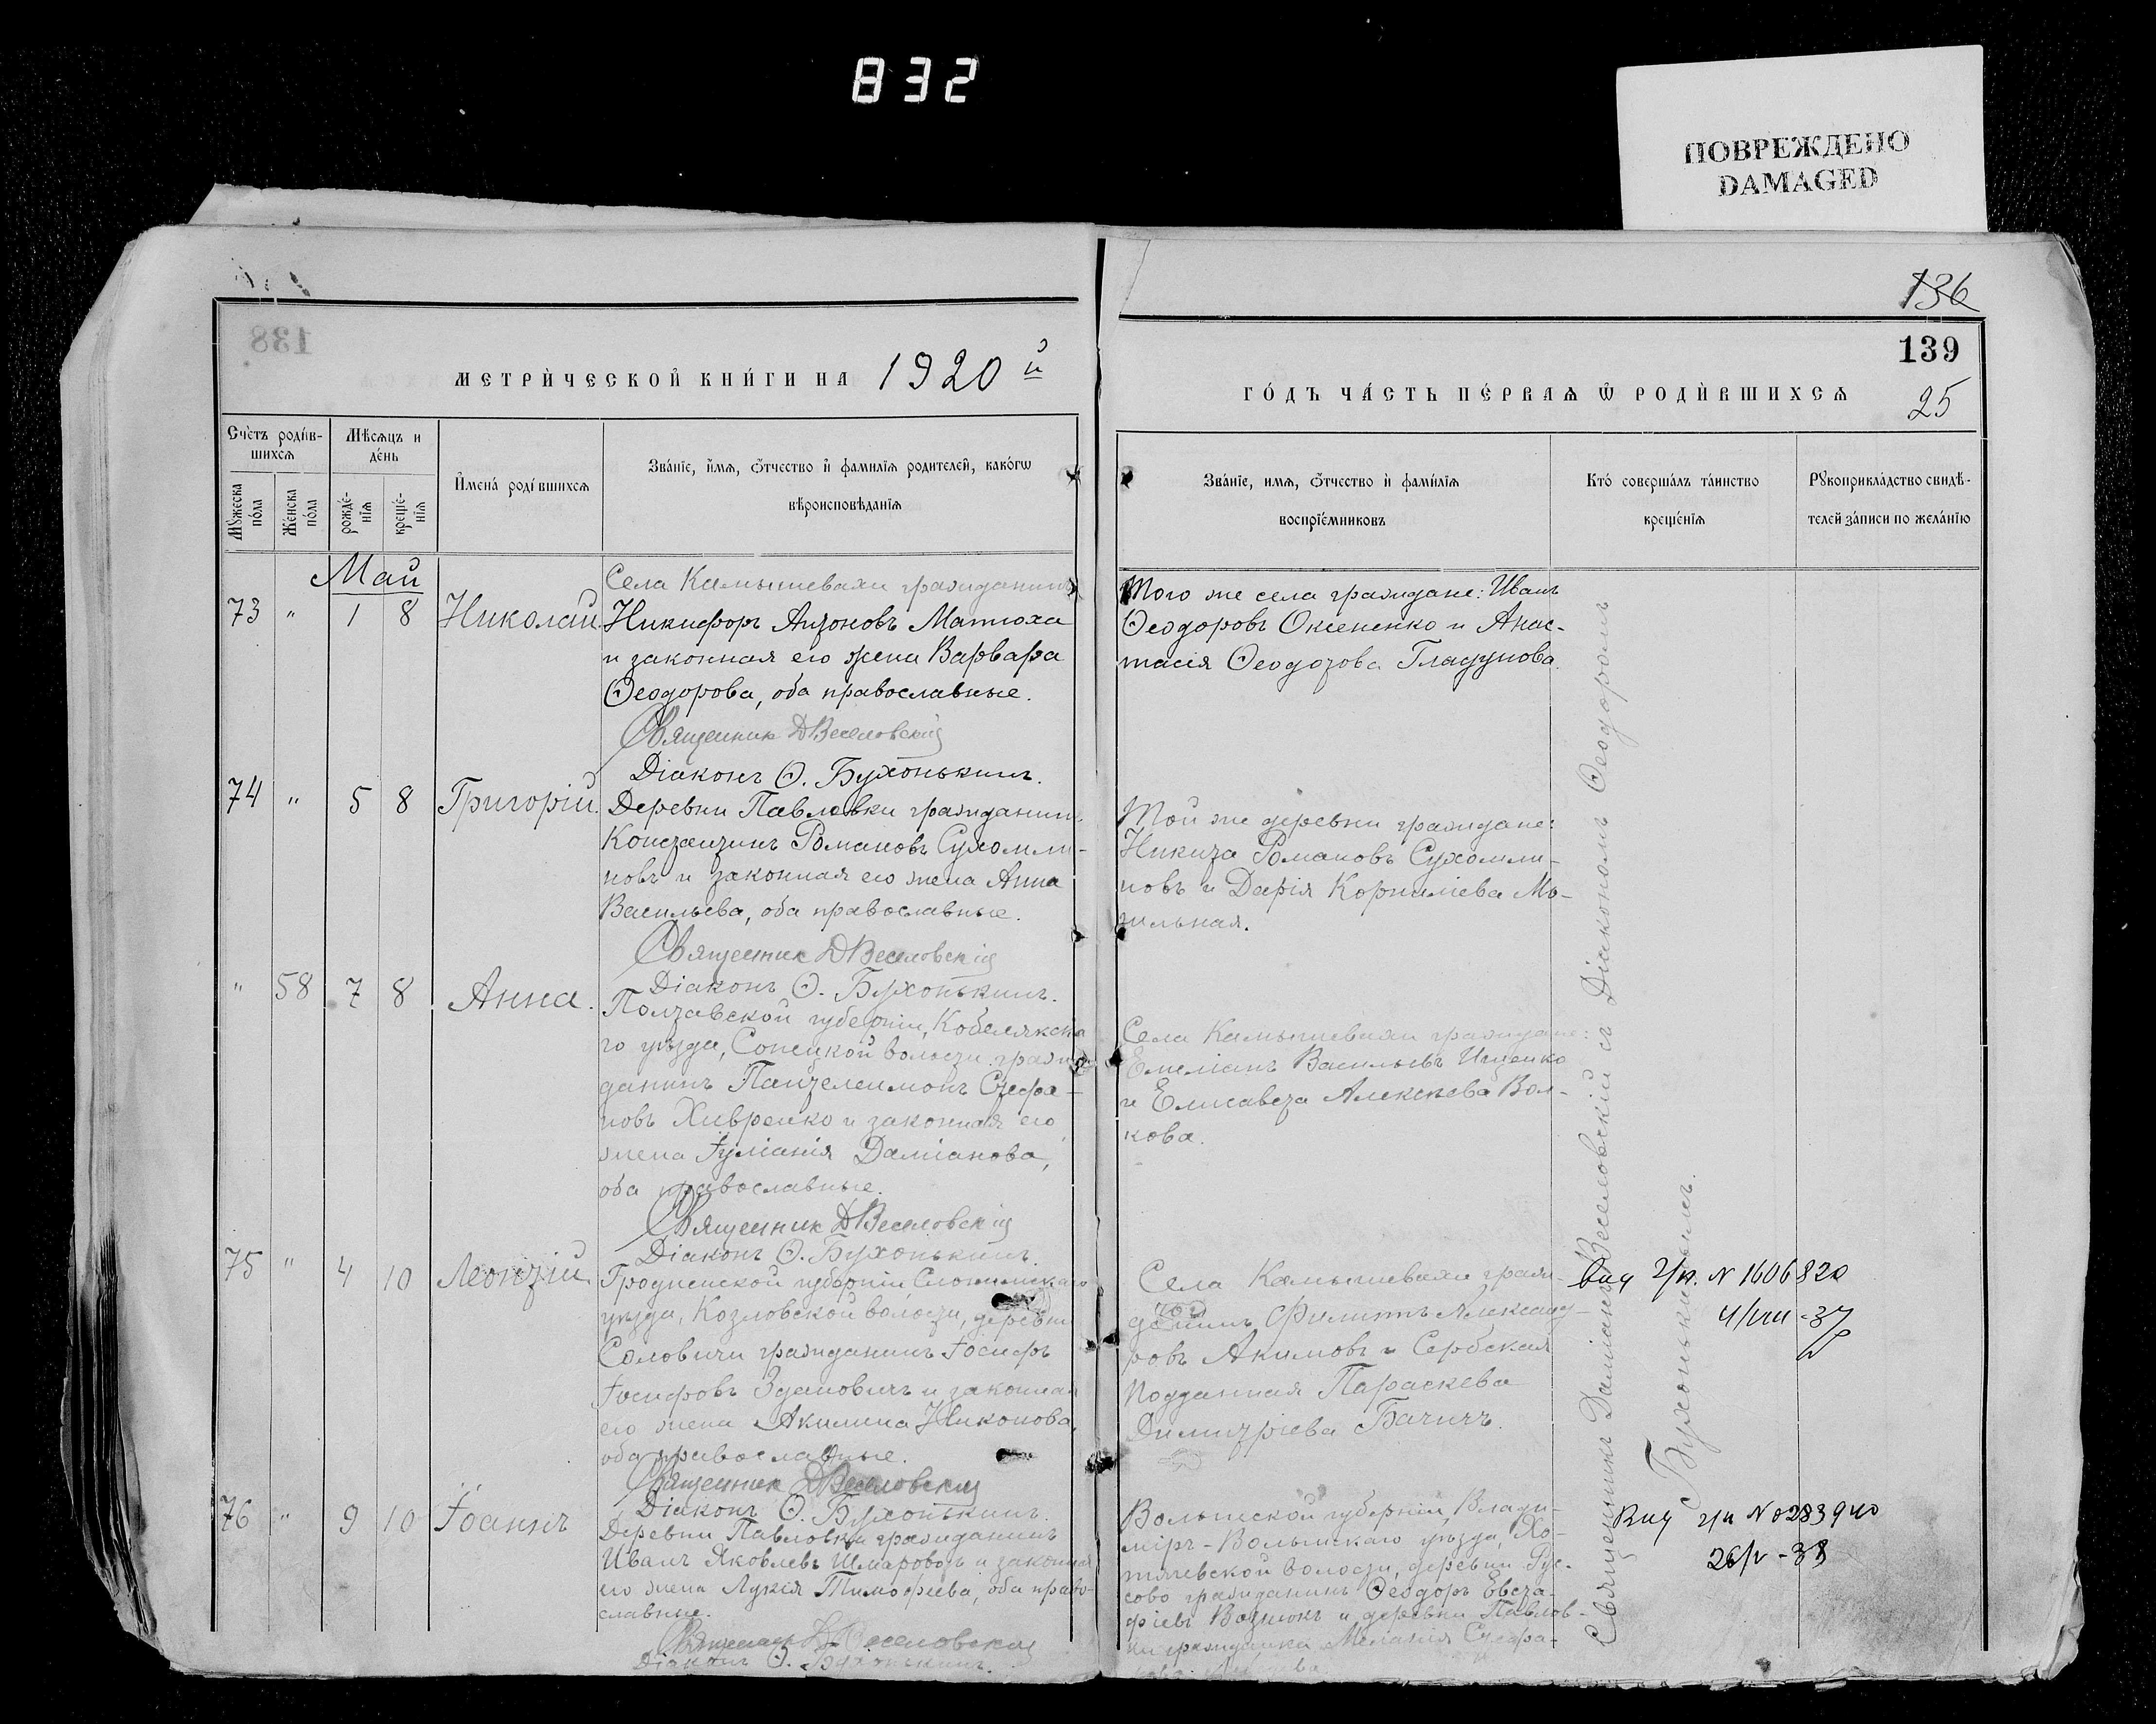 832
ПОВРЕЖДЕНО
DAMAGED
136
138
139
МЕТРИ́ЧЕСКОЙ КНИ́ГИ НА 1920 й
ГО́ДЪ ЧА́СТЬ ПЕ́РВАѦ Ѽ РОДИ́ВШИХСѦ
25
Сче́тъ роди́в-
шихсѧ
Мѣ́сѧцъ и
де́нь
Мꙋ́жеска
по́ла
Же́нска
по́ла
рожде́-
нїѧ
креще́-
нїѧ
И҆мена́ роди́вшихсѧ
Зва́нїе, и҆́мѧ, ѻ҆́тчество и҆ фами́лїѧ роди́телей, како́гѡ
вѣроисповѣ́данїѧ
Зва́нїе, и҆́мѧ, ѻ҆́тчество и҆ фами́лїѧ
воспрїе́мниковъ
Кто́ соверша́лъ та́инство
креще́нїѧ
Рꙋкоприкла́дство свидѣ́-
телей за́писи по жела́нїю
Май
73 " 1 8 Николай.
Села Камышевахи гражданинъ
Никифоръ Антоновъ Матюха
и законная его жена Варвара
Ѳеодорова, оба православные.
Священник ДВеселовскій
Діаконъ Ѳ. Бухонькинъ.
Того же села граждане: Иванъ
Ѳеодоровъ Оксененко и Анас-
тасія Ѳеодотова Гладунова.
74 " 5 8 Григорій.
Деревни Павловки гражданинъ
Константинъ Романовъ Сухомли-
новъ и законная его жена Анна
Васильева, оба православные.
Священник ДВеселовскій
Діаконъ Ѳ. Бухонькинъ.
Той же деревни граждане:
Никита Романовъ Сухомли-
новъ и Дарія Корниліева Мо-
гильная.
" 58 7 8 Анна.
Полтавской губерніи, Кобелякска
го уѣзда, Сокецкой волости граж-
данинъ Пантелеимонъ Стефа-
новъ Хивренко и законная его
жена Іуліанія Даміанова,
оба православные.
Священник ДВеселовскій
Діаконъ Ѳ. Бухонькинъ.
Села Камышевахи граждане:
Емеліанъ Васильевъ Ищенко
и Елисавета Алексѣева Вол-
кова.
75 " 4 10 Леонтій
Гродненской губерніи Слонимскаго
уѣзда, Козловской волости, деревни
Соловичи гражданинъ Іосифъ
Іосифовъ Здановичъ и законная
его жена Акилина Никонова,
оба православные.
Священник ДВеселовскій
Діаконъ Ѳ. Бухонькинъ.
Села Камышевахи граж-
данинъ Филиппъ Александ-
ровъ Акимовъ и Сербская
подданная Параскева
Димитріева Бачичъ.
N 1606820
4/VIII -37
76 " 9 10 Іоаннъ
Деревни Павловки гражданинъ
Иванъ Яковлевъ Шмаровозъ и законная
его жена Лукія Тимофеева, оба право-
славные.
Священник ДВеселовскій
Діаконъ Ѳ. Бухонькинъ.
Волынской губерніи, Влади-
міръ-Волынскаго уѣзда, Хо-
тячевской волости, деревни Рус-
сово гражданинъ Ѳеодоръ Евста-
фіевъ Вознюкъ и деревни Павлов-
ки гражданка Меланія Стефа-
No 283940
26/V - 38
Священникъ Даміанъ Веселовскій съ Діакономъ Ѳеодоромъ
Бухонькинымъ.